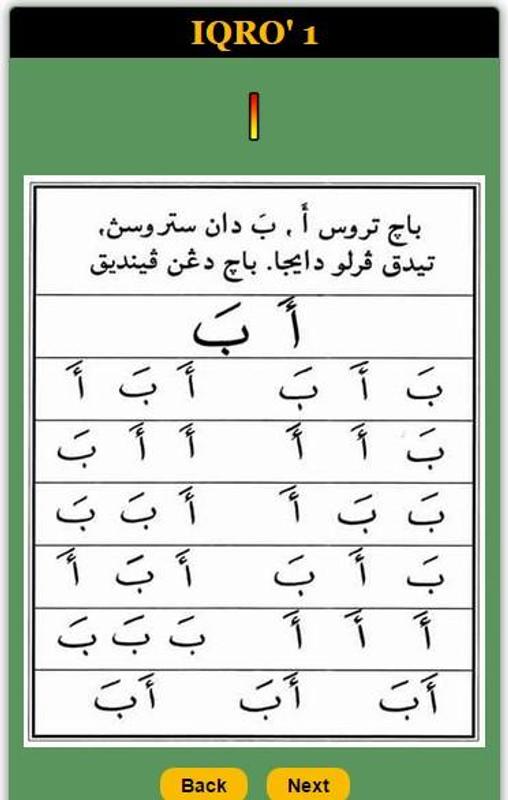 IQRO' 1
باچ تروس أَ ، بَ دان ستروسڽ،
تيدق ڤرلو دايجا. باچ دڠن ڤينديق
أَ بَ
بَ أَ بَ أَ بَ أَ
بَ أَ أَ أَ أَ بَ
بَ بَ أَ أَ بَ بَ
بَ أَ بَ أَ بَ أَ
أَ أَ أَ بَ بَ بَ
أَبَ أَبَ أَبَ
Back Next